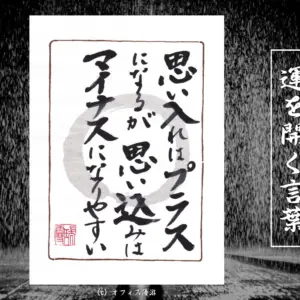 運を開く言葉
思い入れはプラス
になるが 思い込みは
マイナスになりやすい